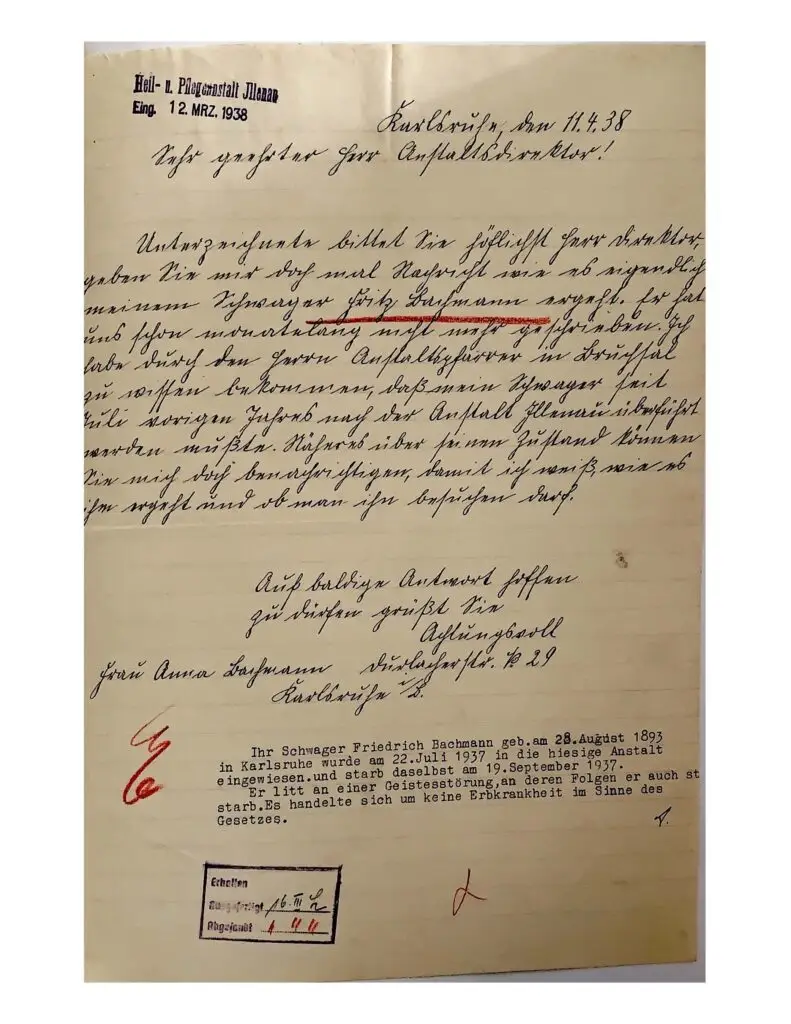 Heil- u. Pflegeanstalt Jllenau
Eing. 12. MRZ. 1938
Karlsruhe, den 11.4.38
Sehr geehrter Herr Anstaltsdirektor!
Unterzeichnete bittet Sie höflichst Herr Direktor,
geben Sie mir doch mal Nachricht wie es eigendlich
meinem Schwager Fritz Bachmann ergeht. Er hat
uns schon monatelang nicht mehr geschrieben. Ich
habe durch den Herrn Anstaltspfarrer in Bruchsal
zu wissen bekommen, daß mein Schwager seit
Juli vorigen Jahres nach der Anstalt Illenau überführt
werden mußte. Näheres über seinen Zustand können
Sie mich doch benachrichtigen, damit ich weiß, wie es
ihm ergeht und ob man ihn besuchen darf.
Auf baldige Antwort hoffen
zu dürfen grüßt Sie
Achtungsvoll
Frau Anna Bachmann Durlacherstr. 29
Karlsruhe i/B.
Ihr Schwager Friedrich Bachmann geb.am 28.August 1893
in Karlsruhe wurde am 22.Juli 1937 in die hiesige Anstalt
eingewiesen.und starb daselbst am 19.September 1937.
Er litt an einer Geistesstörung,an deren Folgen er auch st
starb.Es handelte sich um keine Erbkrankheit im Sinne des
Gesetzes.
Erhalten
Ausgefertigt 16. III
Abgesandt " "